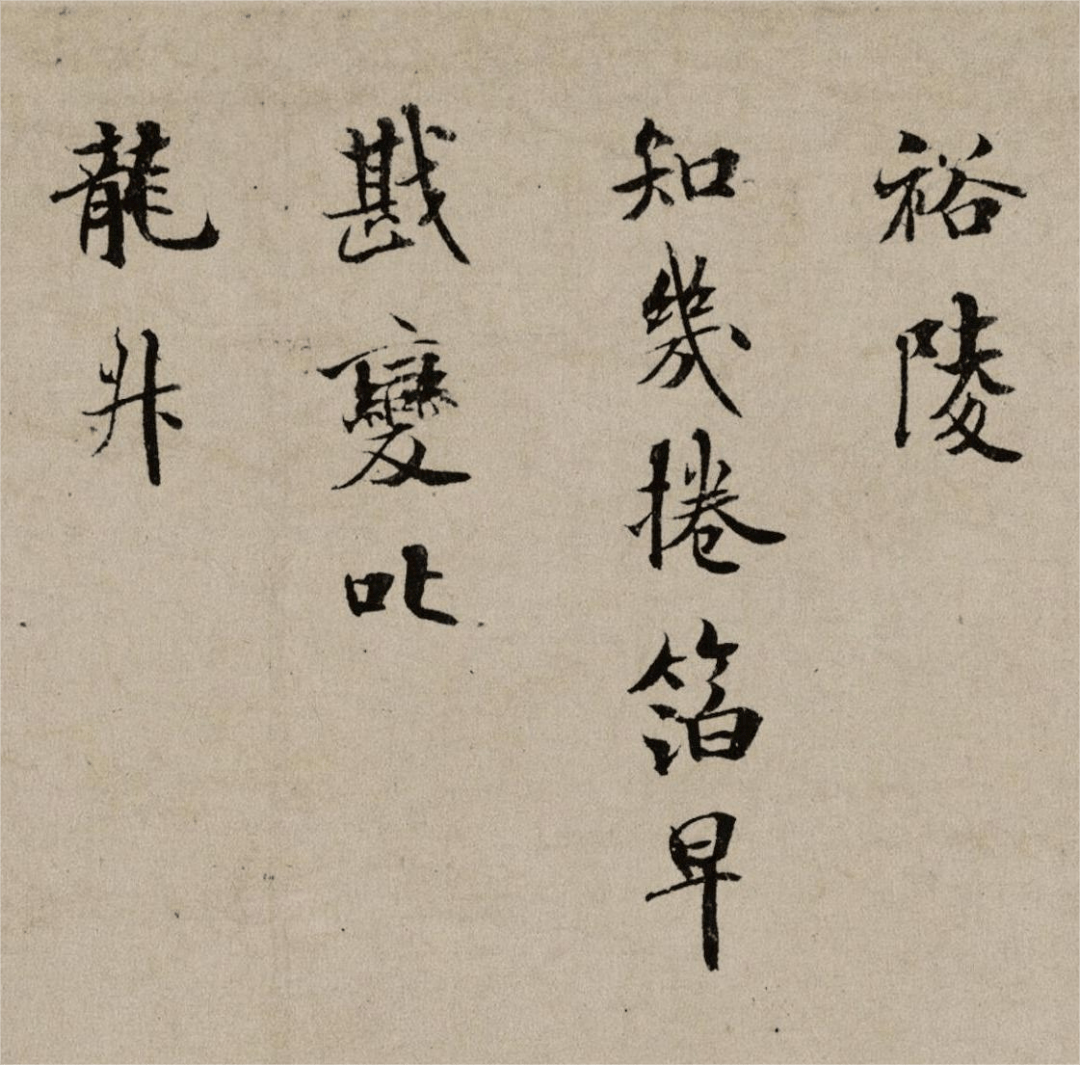 裕陵
知幾捲箔早
戡變叱
龍升